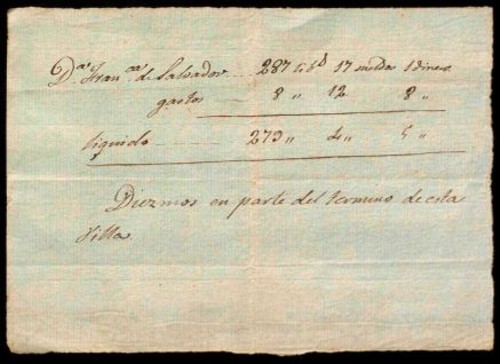 Dª. Franᶜᵃ. de Salvador 287 17 sueldos 1 dinero
gastos 8 „ 12 8 „
liquido 279 „ 4 „ 5 „
Diezmos en parte del termino de esta
Villa.